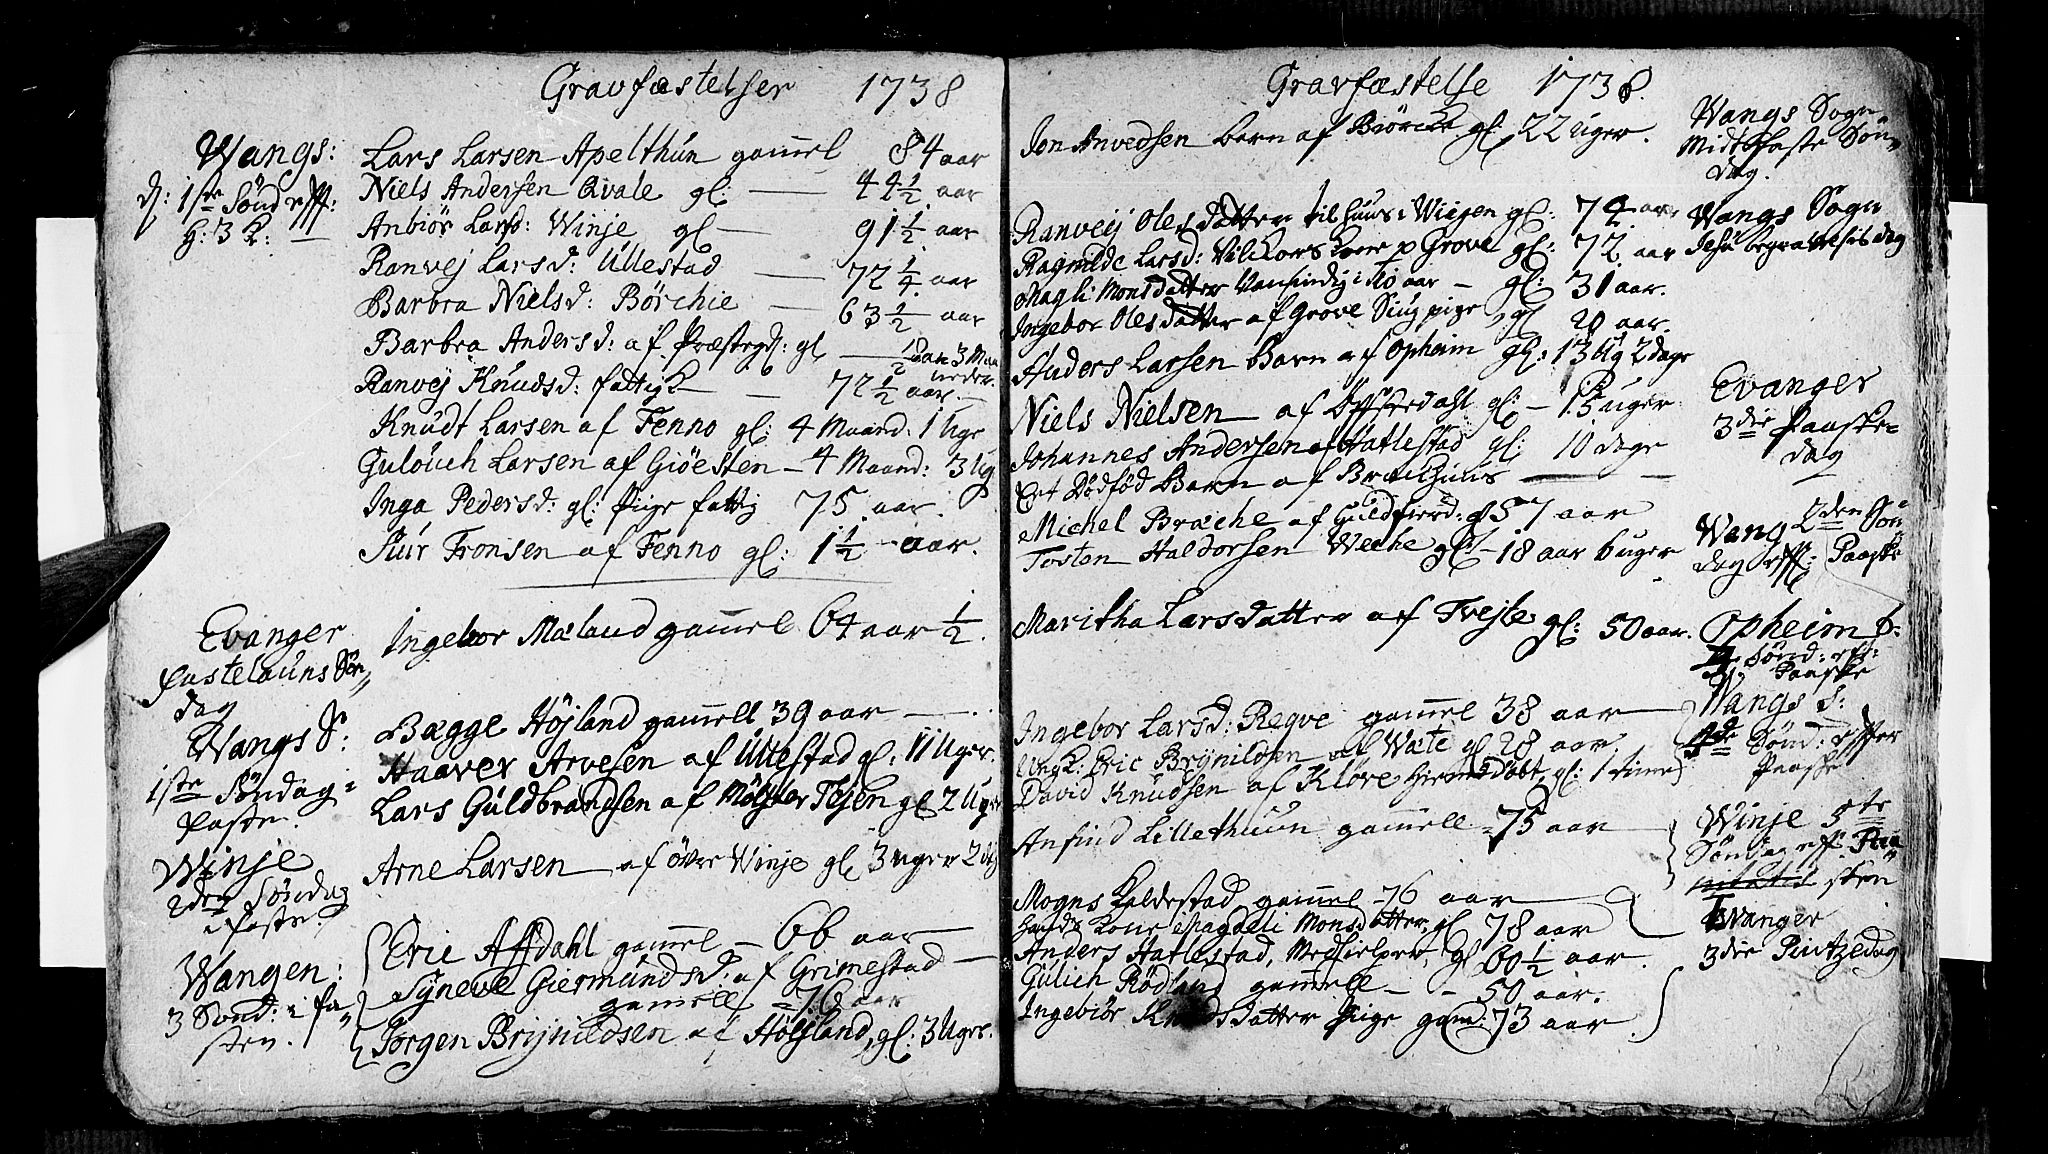 Gravfæstelser 1738
Wangs:
d: 1ste Sønd eff:
H: 3 K: —
Lars Larsen Apelthun gamel 84 aar
Niels Andersen Qvale gl: — 44 1/2 aar
Anbiør Larsd: Winje gl — 91 1/2 aar
Ranvej Larsd: Ullestad — 72 1/4 aar
Barbra Nielsd: Børchie — 63 1/2 aar
Barbra Andersd: af Præstegd: gl — 1/2 aar 3 Maa
neder.
Ranvej Knudsd: fattig — 72 1/2 aar.
Knudt Larsen af Fenno gl: 4 Maand: 1 Uge
Gulouch Larsen af Giøesten — 4 Maand: 3 Ug
Inga Pedersd: gl: Pige fattig 75 aar.
Siur Tronsen af Fenno gl: 1 1/2 aar.
Evanger
fastelauns Søn
dag
Ingebor Mæland gamel 64 aar 1/2.
Wangs S:
1ste Søndag i
faste.
Bagge Højland gamell 39 aar —
Haaver Arvesen af Ullestad gl: 11 Uger.
Lars Guldbrandsen af Mølster Tejen gl 2 Uger
Winje
2den Søndag
i faste.
Arne Larsen af øvre Winje gl 3 uger 2 dg
Wangen:
3 Sønd: i fa
sten.
Eric Affdahl gamel — 66 aar
Syneve Giermundsd: af Grimestad —
gamell = 76 aar
Jørgen Brijnildsen af Højland, gl: 3 Uger.
Gravfæstelse 1738.
Jon Anvedsen barn af Børcke gl 22 uger.
Wangs Sogn
Midtfaste Søn
dag.
Ranveij Olesdatter til huus i Winjen gl: 74 aar
Ragnilde Larsd: Vilkors kone p Grove gl: 72 aar
Magli Monsdatter Vansindig i 10 aar — gl: 31 aar.
Ingebor Olesdatter af Grove Siug pige gl 20 aar.
Anders Larsen Barn af Opheim gl: 13 Ug 2 dage
Wangs Sogn
Jesu begravelsis dag
Niels Nielsen af Øffstedahl gl: — 15 uger
Johannes Andersen af Hatlestad gl: 10 dage
Et Dødfød Barn af Brachuus —
Evanger
3die Paaske=
dag
Michel Brache af Guldfierd: gl 57 aar
Tosten Haldorsen Weche gl — 18 aar 6 uger
Wang 2den Søn
dag eff: Paaske
Maritha Larsdatter af Tvejte gl: 50 aar.
Opheim S:
Sønd: eft:
Paaske
Ingebor Larsd: Reqve gamel 38 aar
Ungk: Eric Brijnildsen af Wæte gl 28 aar.
David Knudsen af Kløve hiemedøbt, gl: 1 time
Wangs S:
4de Sønd: effter
Paaske
Anfind Lillethuun gamell = 75 aar
Winje 5te
Søndag eff: Paa
sken
Mogns Kaldestad gamel — 76 aar
hands kone Magdeli Monsdatter, gl 78 aar
Anders Hatlestad, Medhielper, gl 60 1/2 aar.
Gulich Rødland gamell — 50 aar.
Ingebiør Knudsdatter Pige gaml: 73 aar.
Evanger
3die Pintzedag